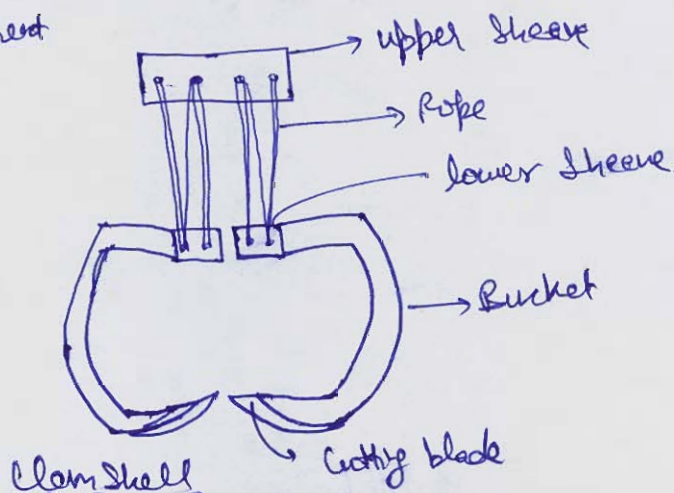 upper Sheave
Rope
lower Sheave
Bucket
Cutting blade
Clam Shell